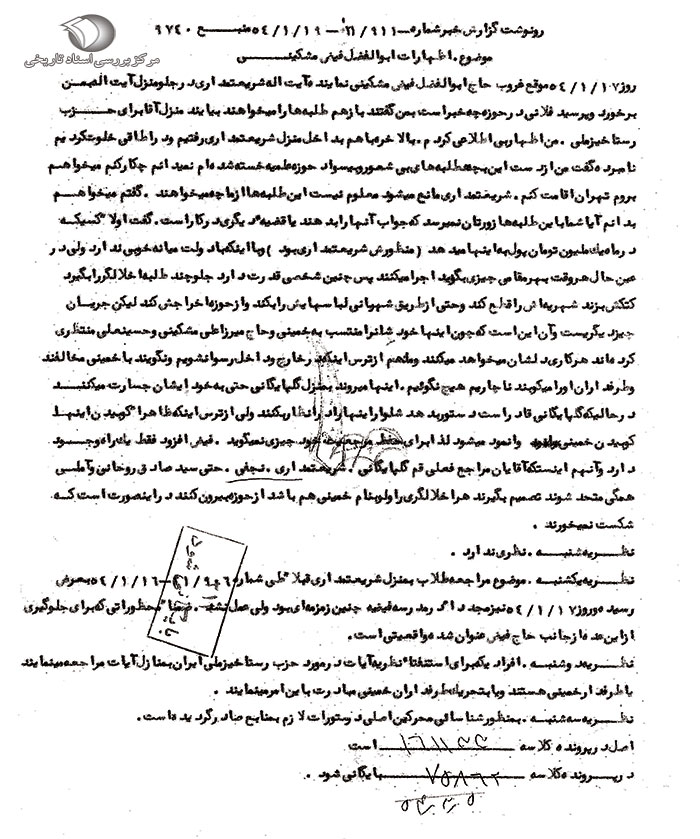 مرکز بررسی اسناد تاریخی
رونوشت گزارش خبر شماره ۹۱۱/ ۲۱ – ۵۴/۱/۱۹ منبع ۹۷۴۰
موضوع . اظهارات ابوالفضل فیض مشکینی
روز ۵۴/۱/۱۷ موقع غروب حاج ابوالفضل فیض مشکینی نماینده آیت اله شریعتمداری در جلو منزل آیت الله بمن
برخورد و پرسید فلانی در حوزه چه خبر است بمن گفتند باز هم طلبه ها میخواهند بیایند منزل آقا برای حزب
رستاخیز ملی . من اظهار بی اطلاعی کردم . بالاخره با هم بداخل منزل شریعتمداری رفتیم و در اطاقی خلوت کردیم
نامبرده گفت من از دست این بچه طلبه های بی شعور و بیسواد حوزه علمیه خسته شده ام نمیدانم چکار کنم میخواهم
بروم تهران اقامت کنم . شریعتمداری مانع میشود معلوم نیست این طلبه ها از ما چه میخواهند . گفتم میخواهم
بدانم آیا شما با این طلبه ها زورتان نمیرسد که جواب آنها را بدهند یا قضیه دیگری در کار است . گفت اولا" کسیکه
در ماه یک ملیون تومان پول به اینها میدهد ( منظورش شریعتمداری بود ) و با اینکه با دولت میانه خوبی ندارد ولی در
عین حال هر وقت بهر مقامی چیزی بگوید اجرا میکنند پس چنین شخصی قدرت دارد جلو چند طلبه اخلالگر را بگیرد
کتکش بزند شهریه اش را قطع کند و حتی از طریق شهربانی لباسهایش را بکند و از حوزه اخراجش کند لیکن جریان
چیز دیگریست و آن این است که چون اینها خودشان را منتسب به خمینی و حاج میرزا علی مشکینی و حسینعلی منتظری
کرده اند هر کاری دلشان میخواهد میکنند و ما هم از ترس اینکه در خارج و داخل رسوا نشویم و نگویند با خمینی مخالفند
و طرفداران او را میکوبند ناچاریم هیچ نگوئیم . اینها میروند بمنزل گلپایگانی حتی به خود ایشان جسارت میکنند
در حالیکه گلپایگانی قادر است دستور بدهد شلوار اینها را در انظار بکنند ولی از ترس اینکه ظاهرا" کوبیدن اینها
کوبیدن خمینی وانمود میشود لذا برای حفظ مرجعیت خود چیزی نمیگوید . فیض افزود فقط یک راه وجود
دارد و آنهم اینستکه آقایان مراجع فعلی قم گلپایگانی . شریعتمداری . نجفی . حتی سید صادق روحانی و آملی
همگی متحد شوند تصمیم بگیرند هر اخلالگری را ولو بنام خمینی هم باشد از حوزه بیرون کنند در اینصورت است که
شکست نمیخورند .
نظریه شنبه . نظری ندارد .
نظریه یکشنبه . موضوع مراجعه طلاب بمنزل شریعتمداری قبلا" طی شماره ۲۱/۹۰۶ – ۵۴/۱/۱۶ بعرض
رسیده و روز ۵۴/۱/۱۷ نیز مجددا" در مدرسه فیضیه چنین زمزمه ای بود ولی عمل نشد . ضمنا" محظوراتی که برای جلوگیری
از این عده از جانب حاج فیض عنوان شده واقعیتی است .
نظریه دوشنبه . افرادیکه برای استفتاء نظریه آیات در مورد حزب رستاخیز ملی ایران بمنازل آیات مراجعه مینمایند
یا طرفدار خمینی هستند و یا بتحریک طرفداران خمینی مبادرت باین امر مینمایند .
نظریه سه شنبه . بمنظور شناسائی محرکین اصلی دستورات لازم بمنابع صادر گردیده است .
اصل در پرونده کلاسه است
در پرونده کلاسه ۷۵۸۶۲ بایگانی شود .